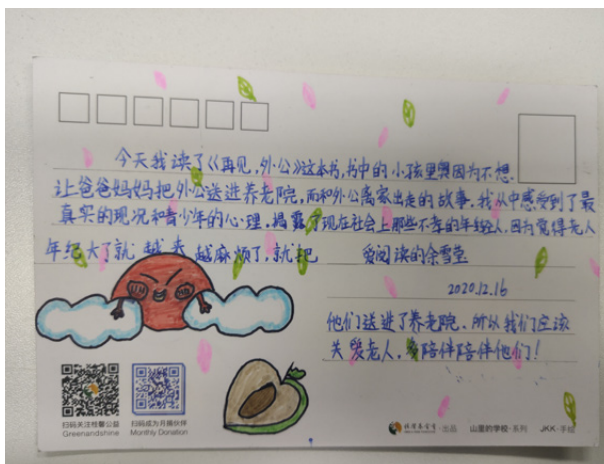 今天我读了《再见,外公》这本书,书中的小孩里奥因为不想
让爸爸妈妈把外公送进养老院,而和外公离家出走的故事。我从中感受到了最
真实的现况和青少年的心理,揭露了现在社会上那些不孝的年轻人,因为觉得老人
年纪大了就越来越麻烦了,就把
爱阅读的余雪莹
2020.12.16
他们送进了养老院。所以我们应该
关爱老人,多陪伴陪伴他们!
扫码关注格馨公益
Greenandshine
扫码成为月捐伙伴
Monthly Donation
出品
山里的学校-系列
JKK-手绘